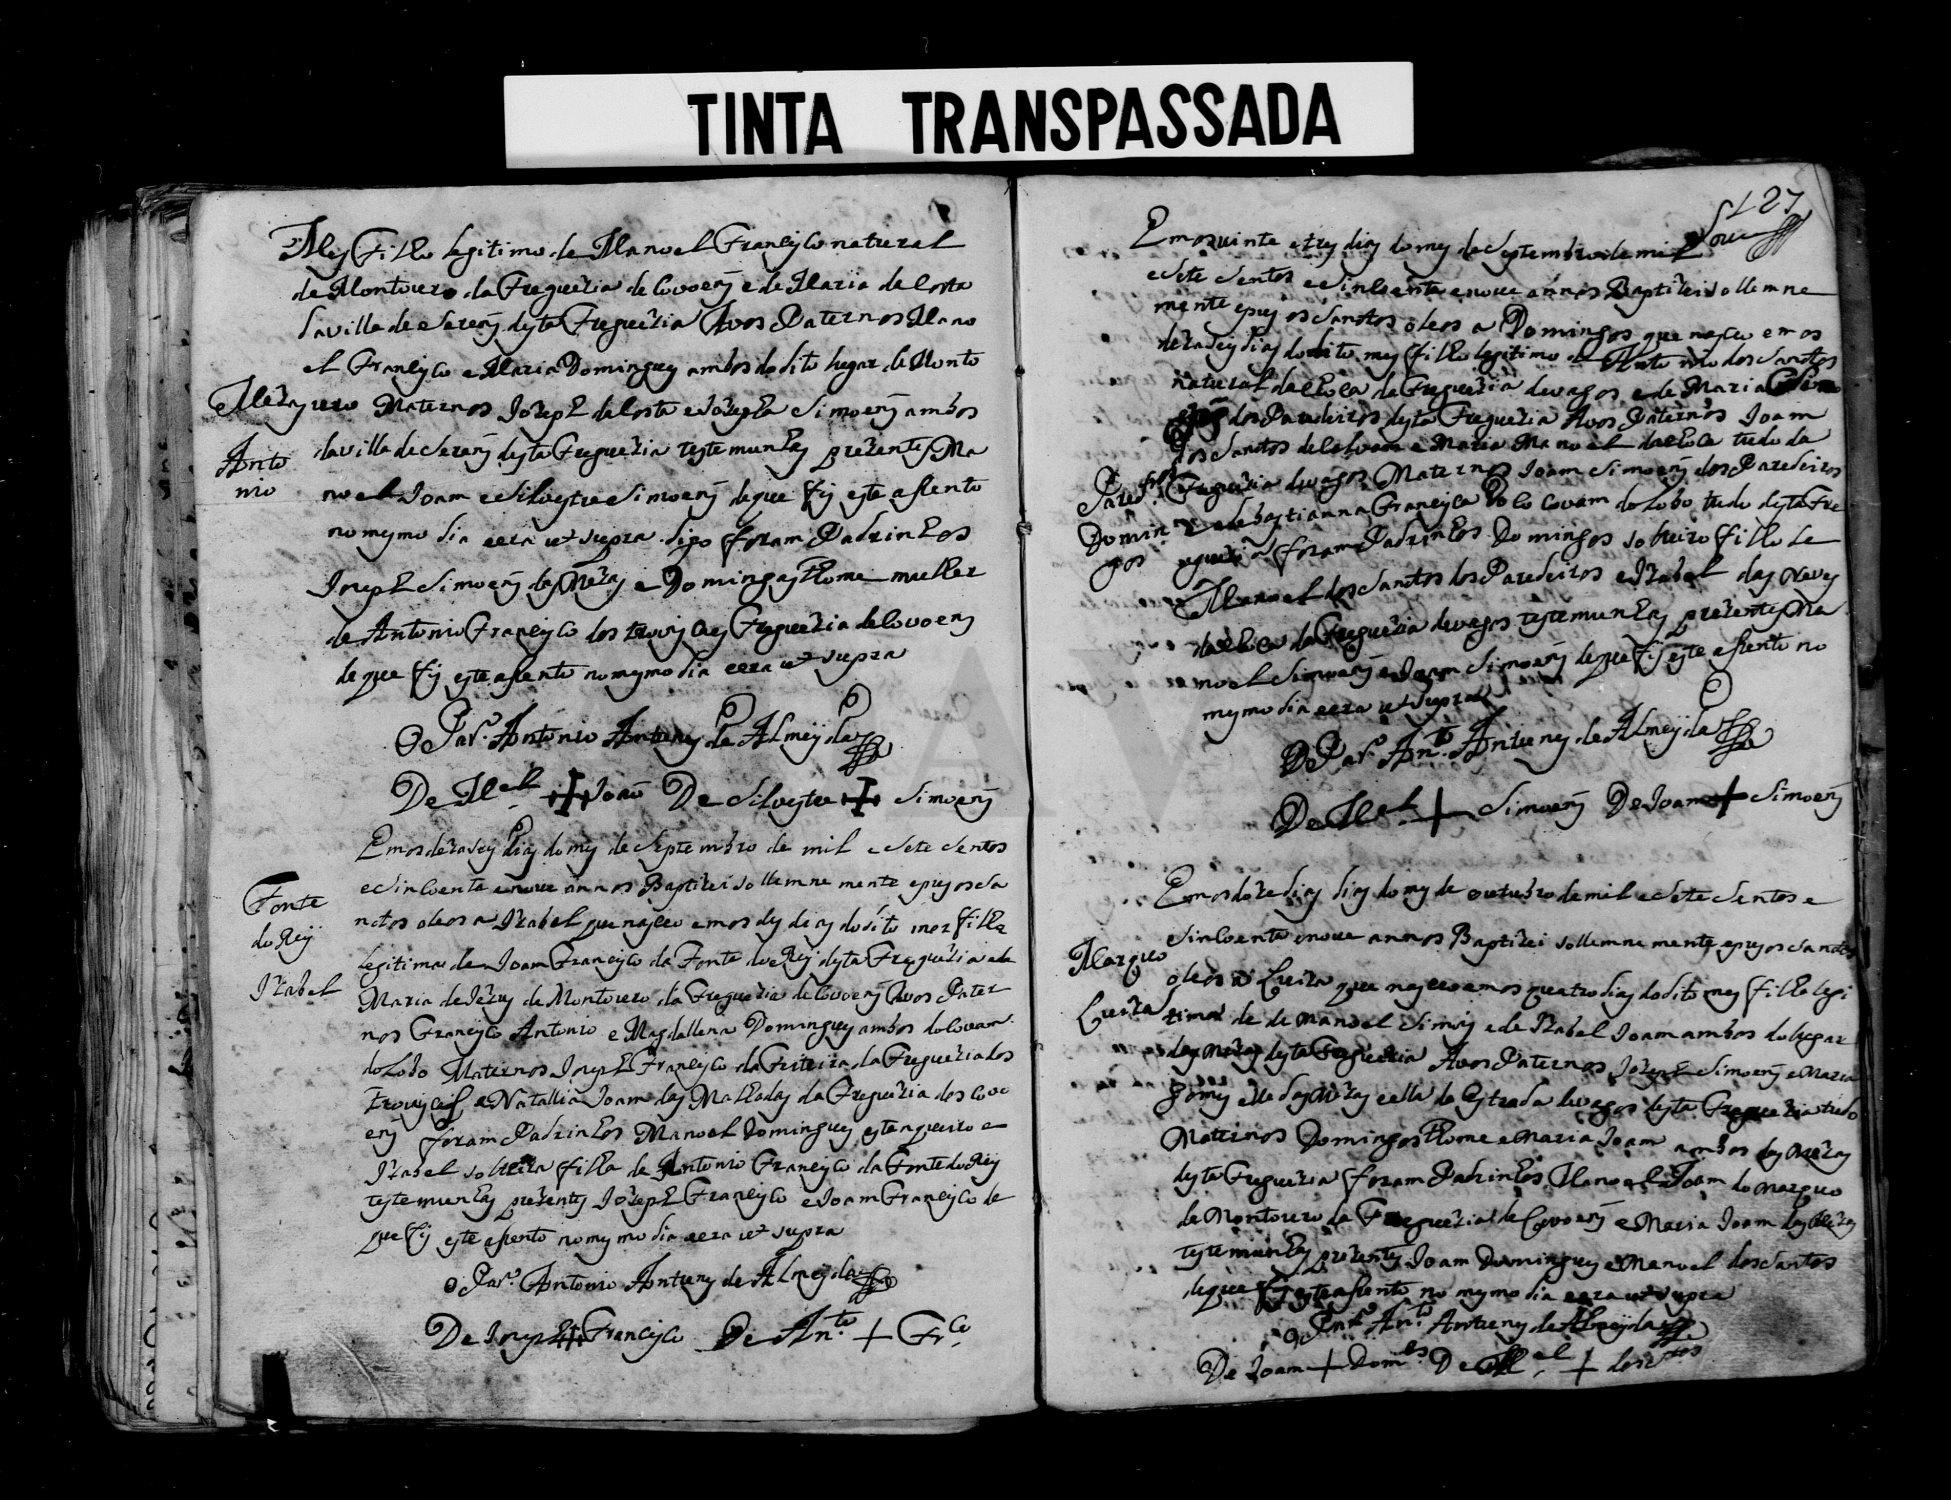 TINTA TRANSPASSADA
Mes Filho legitimo de Manoel Francisco natural
de Montouro da Freguezia de Covoens e de Maria de Costa
da villa de Sereus desta Freguezia Avos Paternos Mano
el Francisco e Maria Domingues ambos do dito lugar de Monto
Mezas
Anto
nio
uro Maternos Jozeph da Costa e Jozepha Simoens ambos
da villa de desta Freguezia testemunhas prezentes Ma
noel Joam e Silvestre Simoens de que fis este asento
no mesmo dia e era ut supra digo foram Padrinhos
Joseph Simoens das Mezas e Domingas Thome mulher
de Antonio Francisco dos Freguezia de Covoens
de que fis este asento no mesmo dia e era ut supra
O Par.º Antonio Antunes de Almeyda
De M.el + Joaõ De Silvestre + Simoens
Fonte
do Rey
Izabel
Em os dezaseis dias do mes de Septembro de mil e sete sentos
e sincoenta e nove annos Baptizei sollemne mente e pus os sa
ntos oleos a Izabel que nasceo em os des dias do dito mes filha
legitima de Joam Francisco da Fonte do Rey desta Freguezia e de
Maria de Jezus de Montouro da Freguezia de Covoens Avos Pater
nos Francisco Antonio e Magdallena Domingues ambos do Covam
do Lobo Maternos Joseph Francisco da Freguezia dos
e Natallia Joam das Malhadas da Freguezia dos Covo
ens foram Padrinhos Manoel Domingues estanqueiro e
Izabel solteira filha de Antonio Francisco da Fonte do Rey
testemunhas prezentes Jozeph Francisco e Joam Francisco de
que fis este asento no mesmo dia e era ut supra
o Par.º Antonio Antunes de Almeyda
De Joseph + Francisco De An.to + Fr.co
127
Em os vinte e tres dias do mes de Septembro de mil
e sete sentos e sincoenta e nove annos Baptizei sollemne
mente e pus os santos oleos a Domingos que nasceo em os
dezaseis dias do dito mes filho legitimo de Antonio dos Santos
natural da Freguezia de vagos e de Maria Simo
ens dos Paredeiros desta Freguezia Avos Paternos Joam
dos Santos de e Maria Manoel tudo da
Domin
gos
Freguezia de vagos Maternos Joam Simoens dos Paredeiros
e Sebastianna Francisca do Covam do Lobo tudo desta Fre
guezia foram Padrinhos Domingos solteiro filho de
Manoel dos Santos dos Paredeiros e Izabel das Neves
da Freguezia de vagos testemunhas prezentes Ma
noel Simoens e Joam Simoens de que fis este asento no
mesmo dia e era ut supra
O Par.º An.to Antunes de Almeyda
De M.el + Simoens De Joam + Simoens
Em os doze dias dias do mes de outubro de mil e sete sentos e
sincoenta e nove annos Baptizei sollemne mente e pus os santos
Marquo
Luiza
oleos a Luiza que nasceo em os quatro dias do dito mes filha legi
tima de de Manoel Simois e de Izabel Joam ambos do lugar
das Mezas desta Freguezia Avos Paternos Jozeph Simoens e Maria
Gomes elle das Mezas e ella da Estrada de vagos desta Freguezia tudo
Maternos Domingos Thome e Maria Joam ambos das Mezas
desta Freguezia foram Padrinhos Manoel Joam do Marquo
de Montouro da Freguezia de Covoens e Maria Joam das Mezas
testemunhas prezentes Joam Domingues e Manoel dos Santos
de que fis este asento no mesmo dia e era ut supra
o Par.º An.to Antunes de Almeyda
De Joam + Dom.es De M.el + dos S.tos